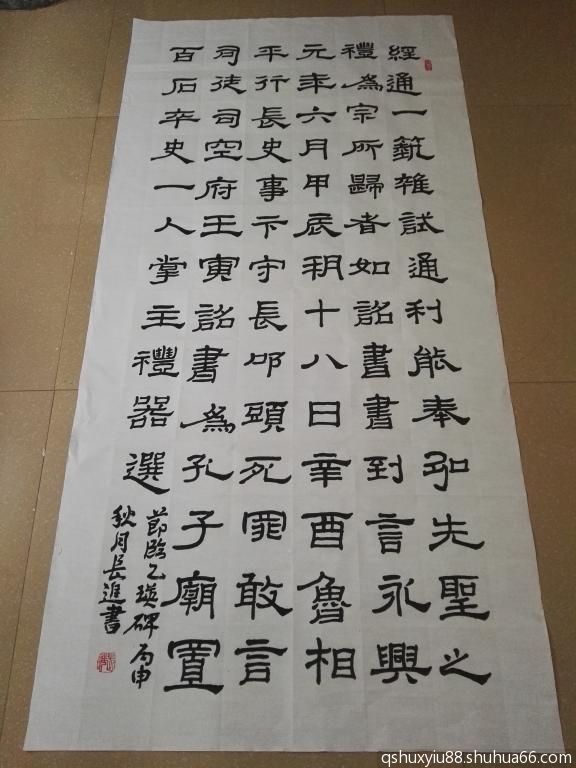 經通一藝雜試通利能奉弘先聖之
禮為宗所歸者如詔書書到言永興
元年六月甲辰朔十八日辛酉魯相
平行長史事卞守長叩頭死罪敢言
司徒司空府壬寅詔書為孔子廟置
百石卒史一人掌主禮器選
節臨乙瑛碑 丙申
秋月長進書
qshuxyiu88.shuhua66.com